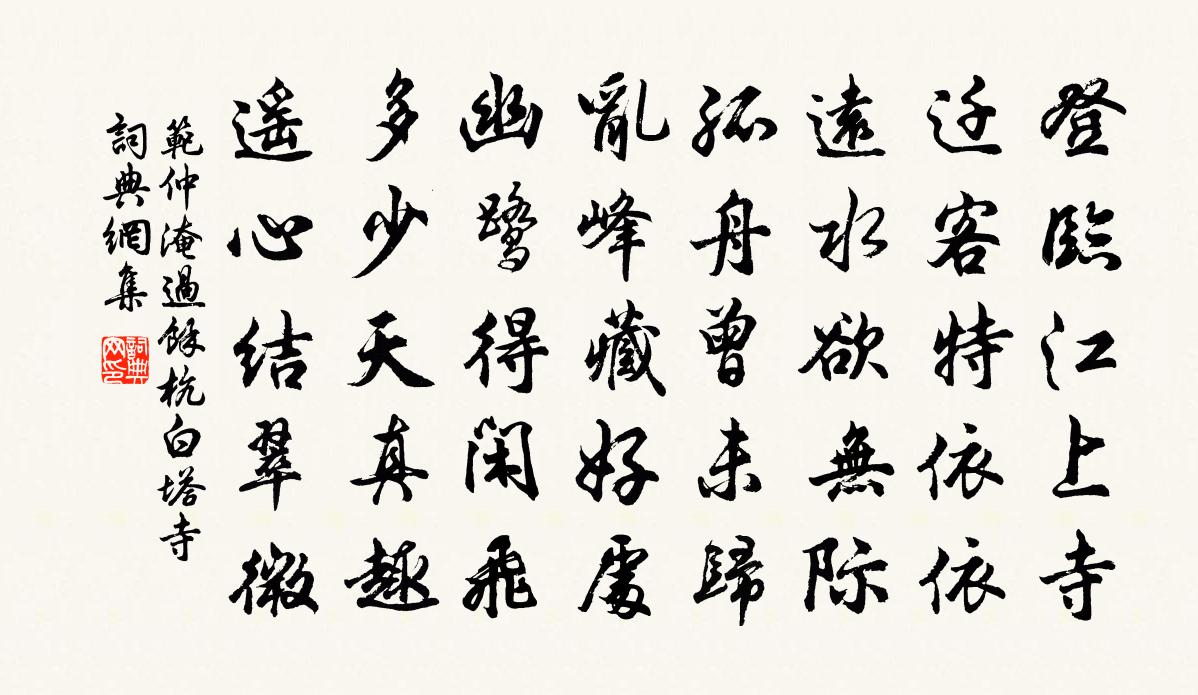 登臨江上寺
迁客特依依
遠水欲無际
孤舟曾未歸
亂峰藏好處
幽鹭得闲飛
多少天真趣
遥心结翠微
範仲淹過餘杭白塔寺
詞典網集
詞典网印